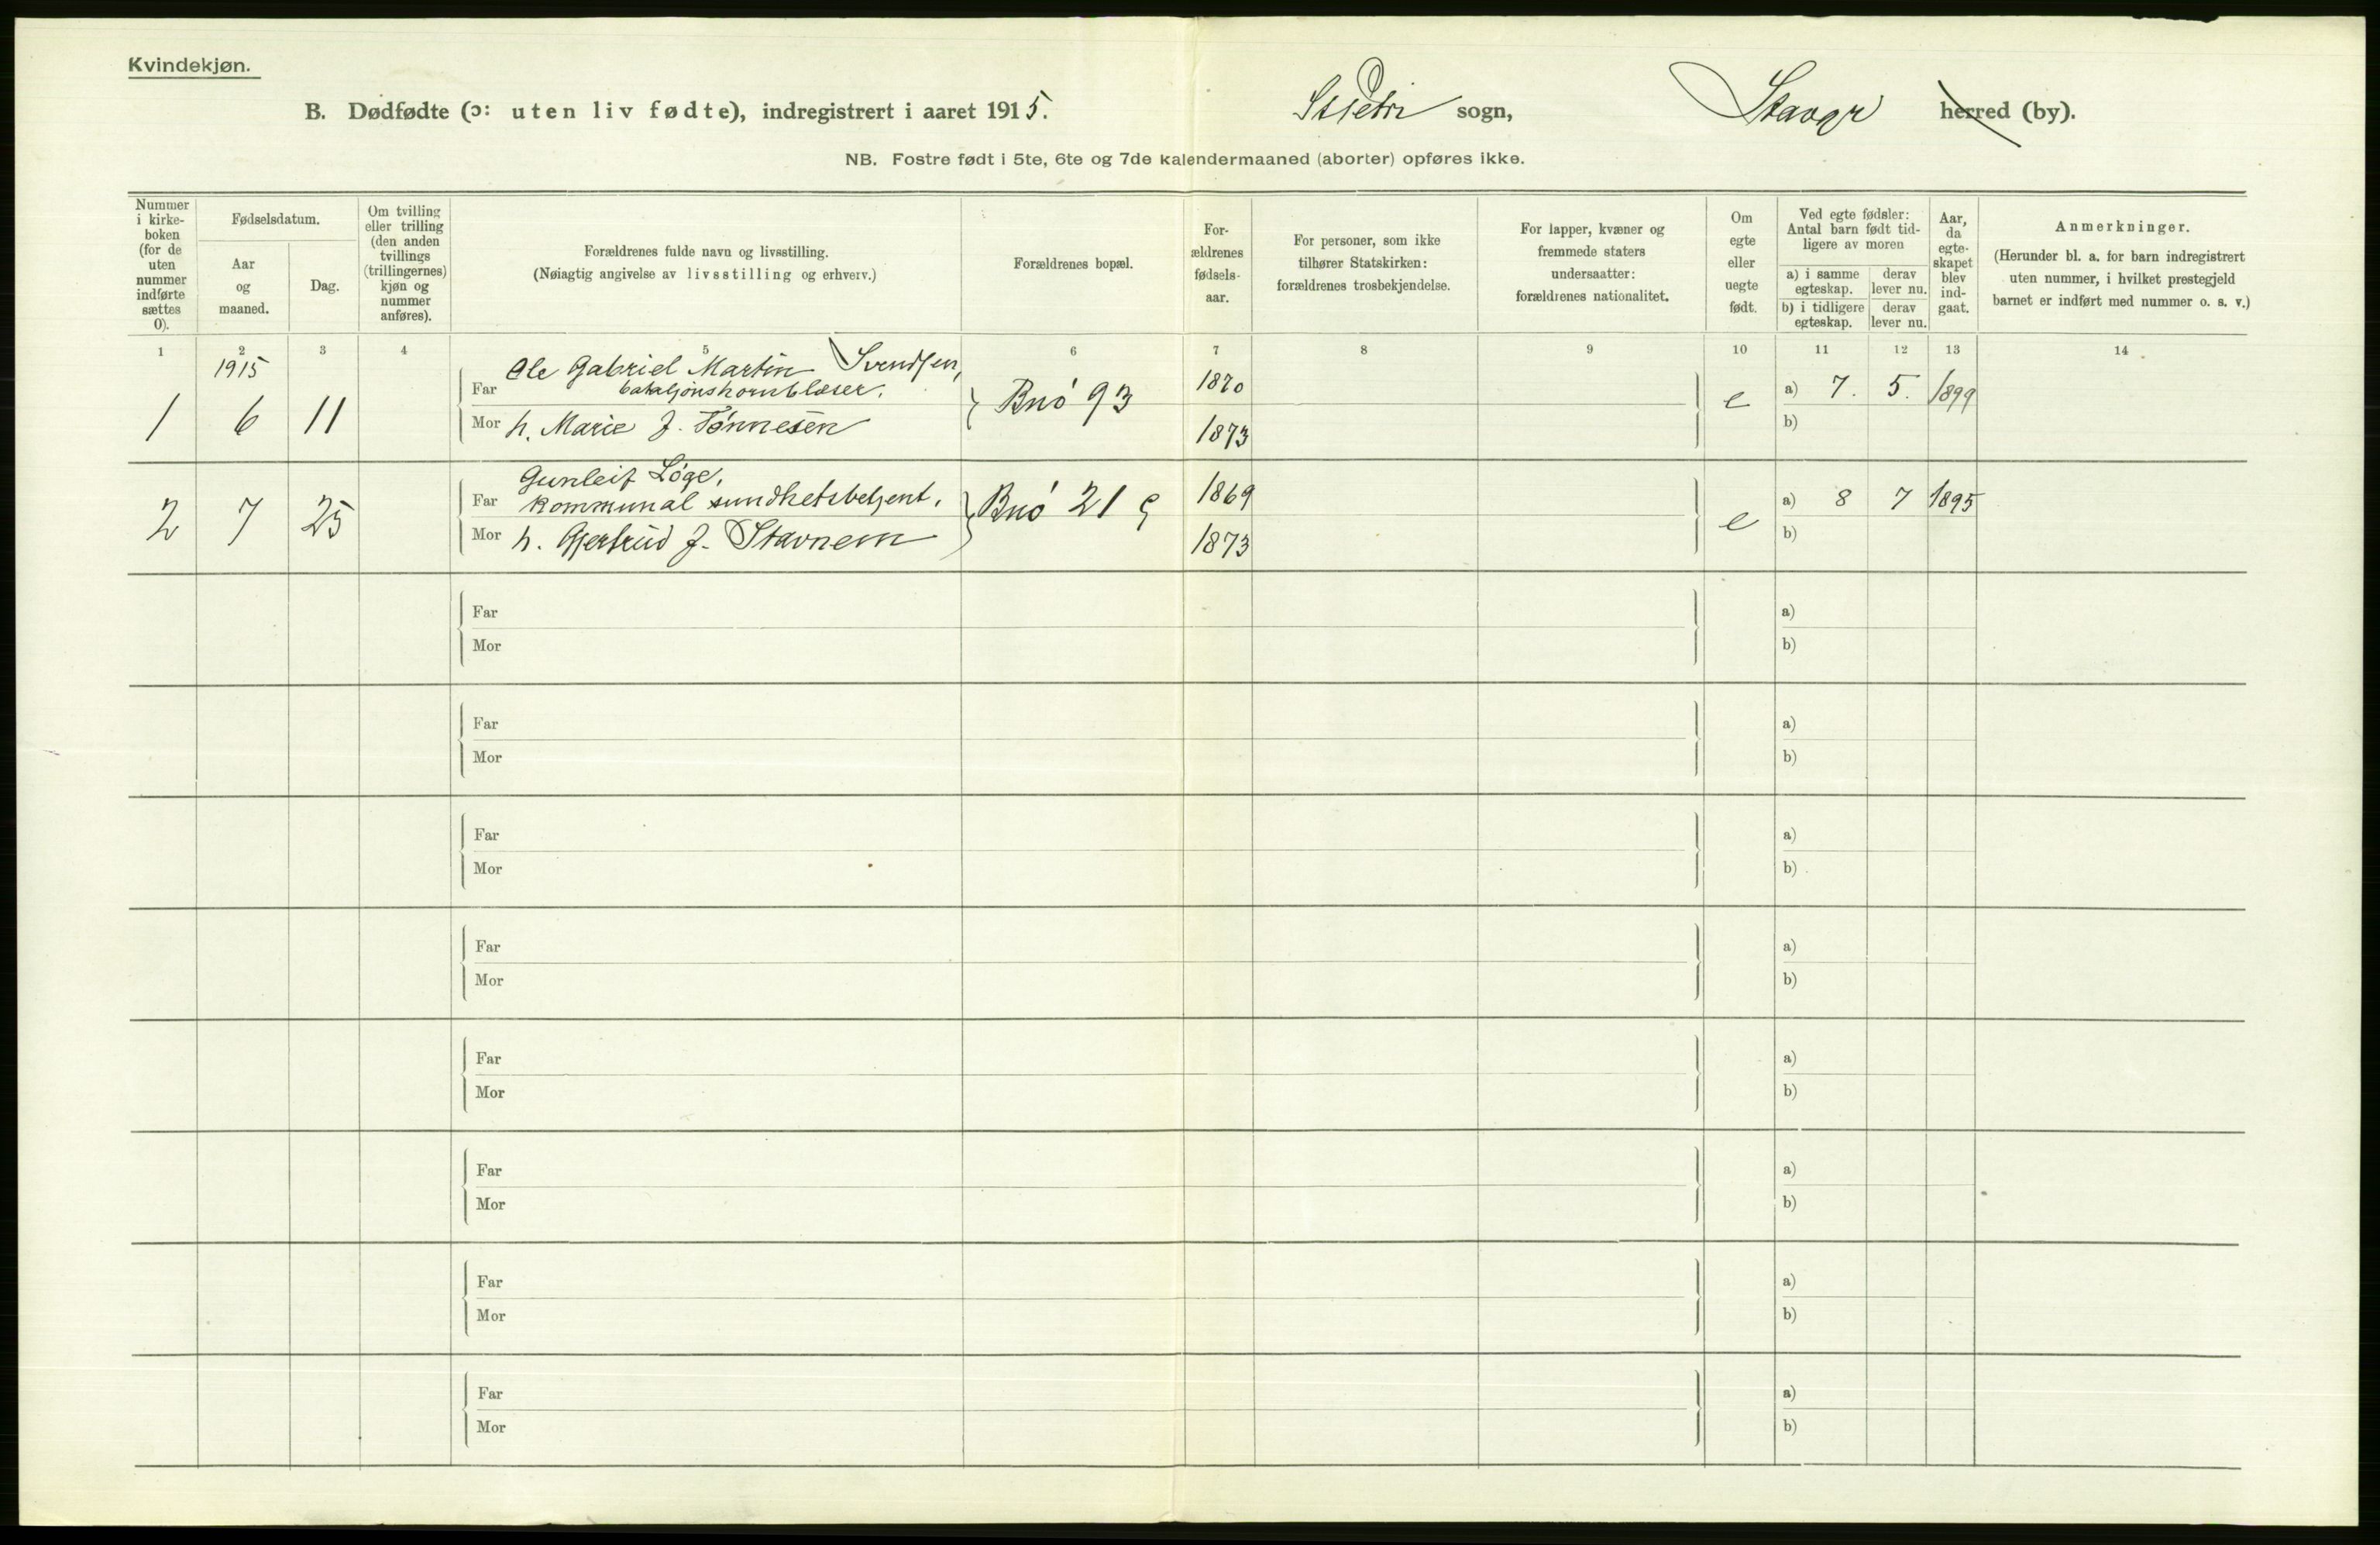 Kvindekjøn.
B. Dødfødte (ɔ: uten liv fødte), indregistrert i aaret 1915. St Petri sogn, Stavgr herred (by).
NB. Fostre født i 5te, 6te og 7de kalendermaaned (aborter) opføres ikke.
Nummer i kirke-boken (for de uten nummer indførte sættes 0).
Fødselsdatum.
Aar og maaned.
Dag.
Om tvilling eller trilling (den anden tvillings (trillingernes) kjøn og nummer anføres).
Forældrenes fulde navn og livsstilling.
(Nøiagtig angivelse av livsstilling og erhverv.)
Forældrenes bopæl.
For-ældrenes fødsels-aar.
For personer, som ikke tilhører Statskirken: forældrenes trosbekjendelse.
For lapper, kvæner og fremmede staters undersaatter: forældrenes nationalitet.
Om egte eller uegte født.
Ved egte fødsler: Antal barn født tid-ligere av moren
a) i samme egteskap.
derav lever nu.
b) i tidligere egteskap.
derav lever nu.
Aar, da egte-skapet blev ind-gaat.
Anmerkninger.
(Herunder bl. a. for barn indregistrert uten nummer, i hvilket prestegjeld barnet er indført med nummer o. s. v.)
1 2 3 4 5 6 7 8 9 10 11 12 13 14
1915
Ole Gabriel Martin Svendsen,
Far bataljonshornblæser. 1870 a) 7. 5. 1899
1 6 11 Bnó 93 e
Mor h. Marie f. Tønnesen 1873 b)
Gunleif Løge,
Far kommunal sundhetsbetjent. 1869 a) 8 7 1895
2 7 25 Bnó 21 e
Mor h. Gjertrud f. Stavnem 1873 b)
Far a)
Mor b)
Far a)
Mor b)
Far a)
Mor b)
Far a)
Mor b)
Far a)
Mor b)
Far a)
Mor b)
Far a)
Mor b)
Far a)
Mor b)